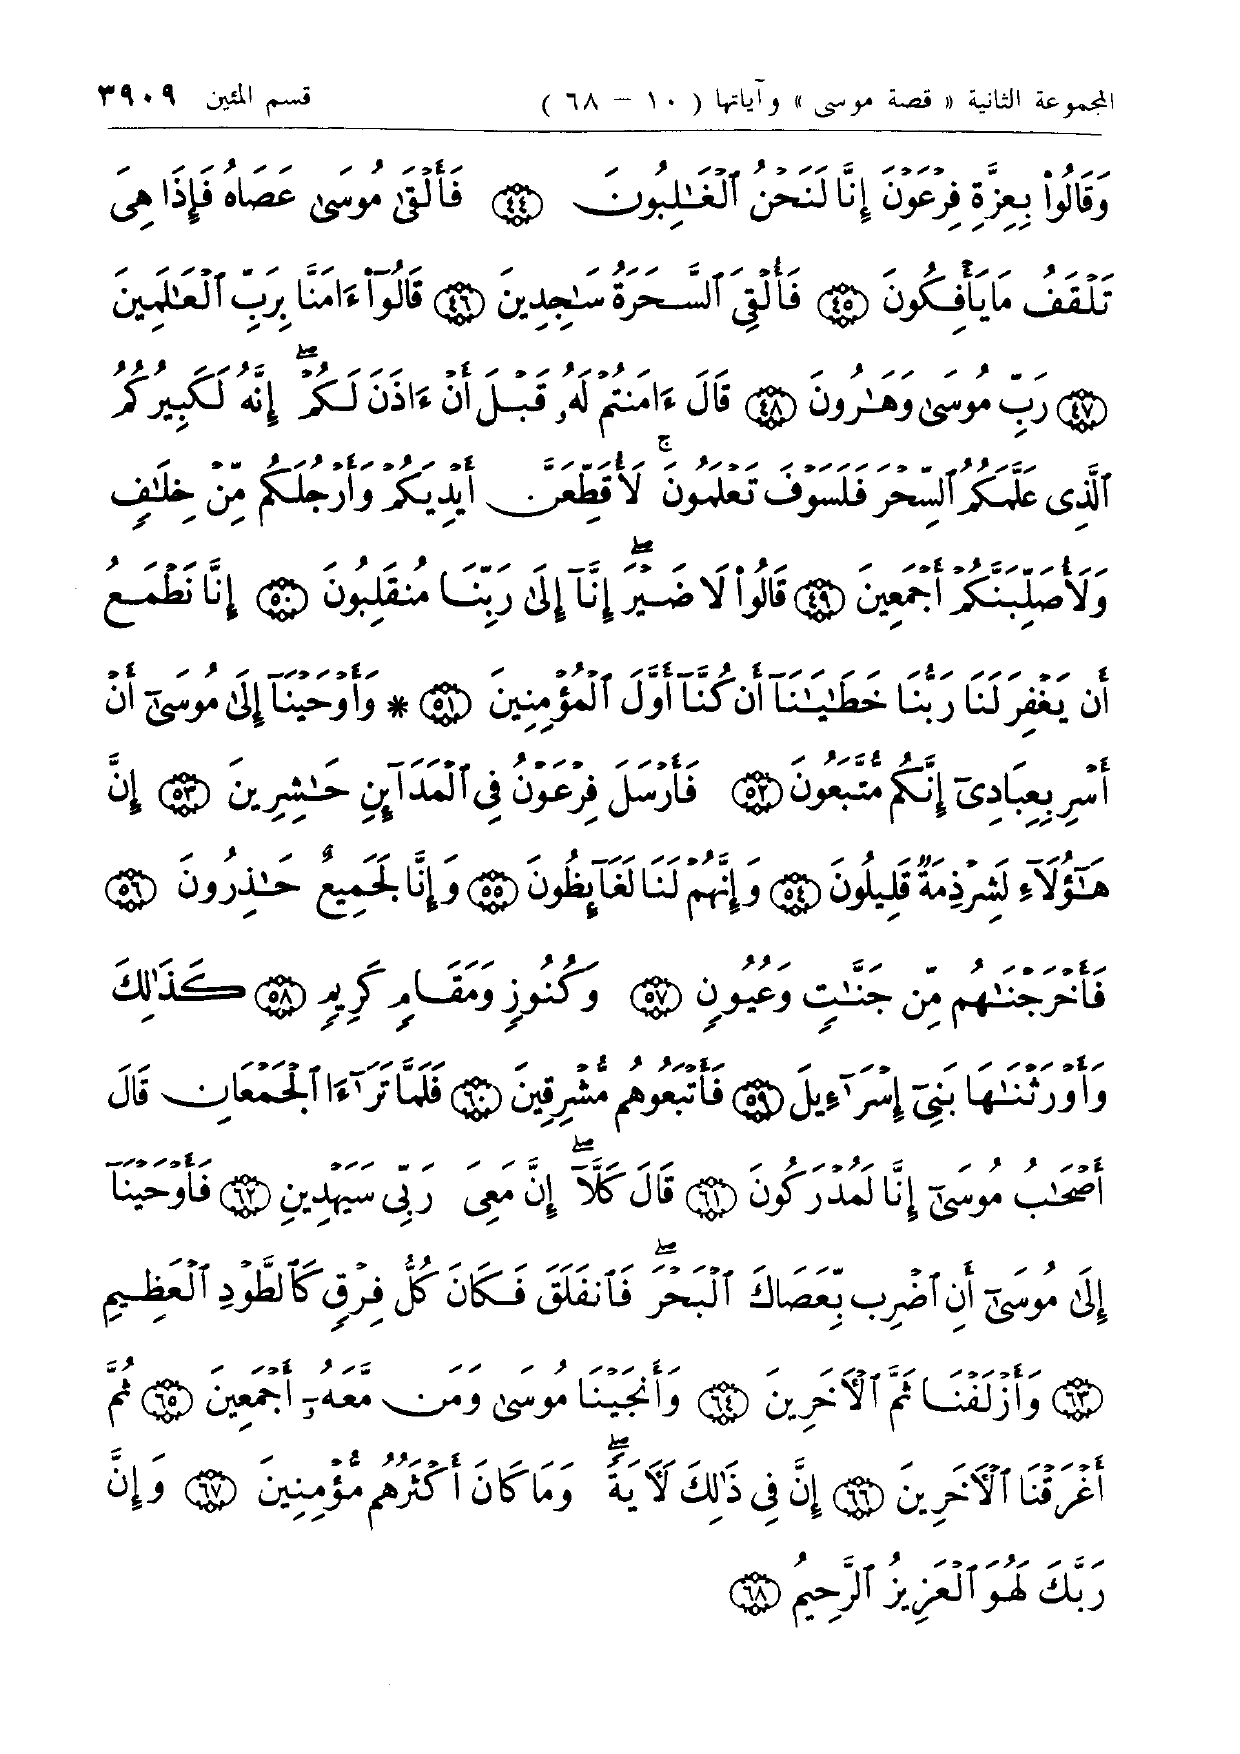 المجموعة الثانية « قصة موسى » وآياتها ( ١٠ – ٦٨ ) قسم المئين ٣٩٠٩
وَقَالُوا۟ بِعِزَّةِ فِرْعَوْنَ إِنَّا لَنَحْنُ ٱلْغَـٰلِبُونَ ٤٤ فَأَلْقَىٰ مُوسَىٰ عَصَاهُ فَإِذَا هِىَ
تَلْقَفُ مَا يَأْفِكُونَ ٤٥ فَأُلْقِىَ ٱلسَّحَرَةُ سَـٰجِدِينَ ٤٦ قَالُوٓا۟ ءَامَنَّا بِرَبِّ ٱلْعَـٰلَمِينَ
٤٧ رَبِّ مُوسَىٰ وَهَـٰرُونَ ٤٨ قَالَ ءَامَنتُمْ لَهُۥ قَبْلَ أَنْ ءَاذَنَ لَكُمْ ۖ إِنَّهُۥ لَكَبِيرُكُمُ
ٱلَّذِى عَلَّمَكُمُ ٱلسِّحْرَ فَلَسَوْفَ تَعْلَمُونَ ۚ لَأُقَطِّعَنَّ أَيْدِيَكُمْ وَأَرْجُلَكُم مِّنْ خِلَـٰفٍ
وَلَأُصَلِّبَنَّكُمْ أَجْمَعِينَ ٤٩ قَالُوا۟ لَا ضَيْرَ ۖ إِنَّآ إِلَىٰ رَبِّنَا مُنقَلِبُونَ ٥٠ إِنَّا نَطْمَعُ
أَن يَغْفِرَ لَنَا رَبُّنَا خَطَـٰيَـٰنَآ أَن كُنَّآ أَوَّلَ ٱلْمُؤْمِنِينَ ٥١ * وَأَوْحَيْنَآ إِلَىٰ مُوسَىٰٓ أَنْ
أَسْرِ بِعِبَادِىٓ إِنَّكُم مُّتَّبَعُونَ ٥٢ فَأَرْسَلَ فِرْعَوْنُ فِى ٱلْمَدَآئِنِ حَـٰشِرِينَ ٥٣ إِنَّ
هَـٰٓؤُلَآءِ لَشِرْذِمَةٌ قَلِيلُونَ ٥٤ وَإِنَّهُمْ لَنَا لَغَآئِظُونَ ٥٥ وَإِنَّا لَجَمِيعٌ حَـٰذِرُونَ ٥٦
فَأَخْرَجْنَـٰهُم مِّن جَنَّـٰتٍ وَعُيُونٍ ٥٧ وَكُنُوزٍ وَمَقَامٍ كَرِيمٍ ٥٨ كَذَٰلِكَ
وَأَوْرَثْنَـٰهَا بَنِىٓ إِسْرَٰٓءِيلَ ٥٩ فَأَتْبَعُوهُم مُّشْرِقِينَ ٦٠ فَلَمَّا تَرَٰٓءَا ٱلْجَمْعَانِ قَالَ
أَصْحَـٰبُ مُوسَىٰٓ إِنَّا لَمُدْرَكُونَ ٦١ قَالَ كَلَّآ ۖ إِنَّ مَعِىَ رَبِّى سَيَهْدِينِ ٦٢ فَأَوْحَيْنَآ
إِلَىٰ مُوسَىٰٓ أَنِ ٱضْرِب بِّعَصَاكَ ٱلْبَحْرَ ۖ فَٱنفَلَقَ فَكَانَ كُلُّ فِرْقٍ كَٱلطَّوْدِ ٱلْعَظِيمِ
٦٣ وَأَزْلَفْنَا ثَمَّ ٱلْـَٔاخَرِينَ ٦٤ وَأَنجَيْنَا مُوسَىٰ وَمَن مَّعَهُۥٓ أَجْمَعِينَ ٦٥ ثُمَّ
أَغْرَقْنَا ٱلْـَٔاخَرِينَ ٦٦ إِنَّ فِى ذَٰلِكَ لَـَٔايَةً ۖ وَمَا كَانَ أَكْثَرُهُم مُّؤْمِنِينَ ٦٧ وَإِنَّ
رَبَّكَ لَهُوَ ٱلْعَزِيزُ ٱلرَّحِيمُ ٦٨